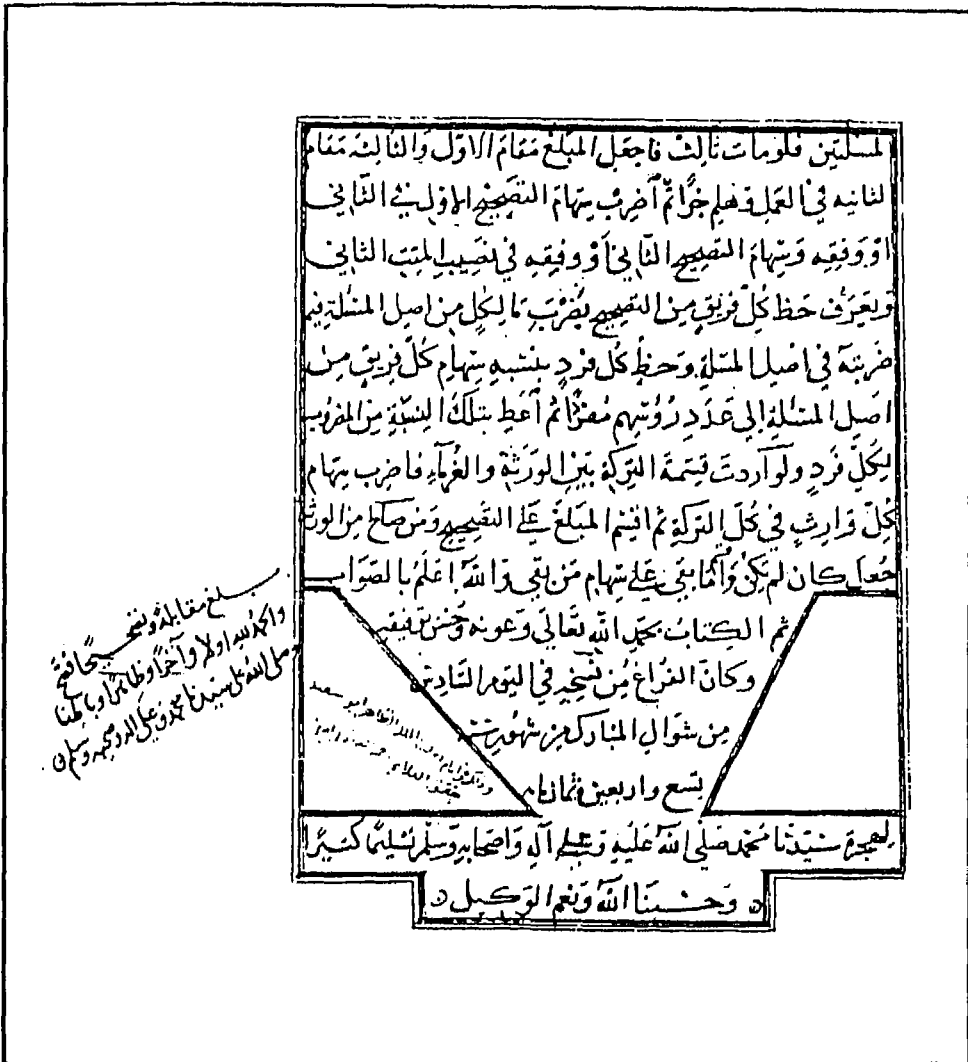 لمسئلتين فلومات ثالث فاجعل المبلغ مقام الاول والثالثه مقام
لثانيه في العمل وهلم جرا ثم أضرب سهام التصحيح الاول في الثاني
او وفقه وسهام التصحيح الثاني أو وفيقه في نصيب الميت الثاني
ويعرف حظ كل فريق من التصحيح بضرب ما لكل من اصل المسئلة فيما
ضربته في اصل المسئلة وحظ كل فرد بنسبه سهام كل فريق من
اصل المسئلة إلى عدد رؤسهم مفردا ثم أعط بتلك النسبة من المضروب
لكل فرد ولو أردت قسمة التركة بين الورثة والغرماء فاضرب سهام
كل وارث في كل التركة ثم اقسم المبلغ على التصحيح ومن صالح من الورثة
جعل كان لم يكن وأقسم ما بقى على سهام من بقي والله اعلم بالصواب
تم الكتاب بحمد الله تعالي وعونه وحسن توفيقه
وكان الفراغ من نسخه في اليوم السادس
من شوال المبارك من شهور سنه
تسع واربعين وثمانمائه
لهجرة سيدنا محمد صلي الله عليه وعلى آله واصحابه وسلم تسليما كثيرا
وحسبنا الله ونعم الوكيل
بلغ مقابلة وتصحيحا فصح
والحمد لله اولا وآخرا وظاهرا وباطنا
وصلى الله على سيدنا محمد وعلى آله وصحبه وسلم